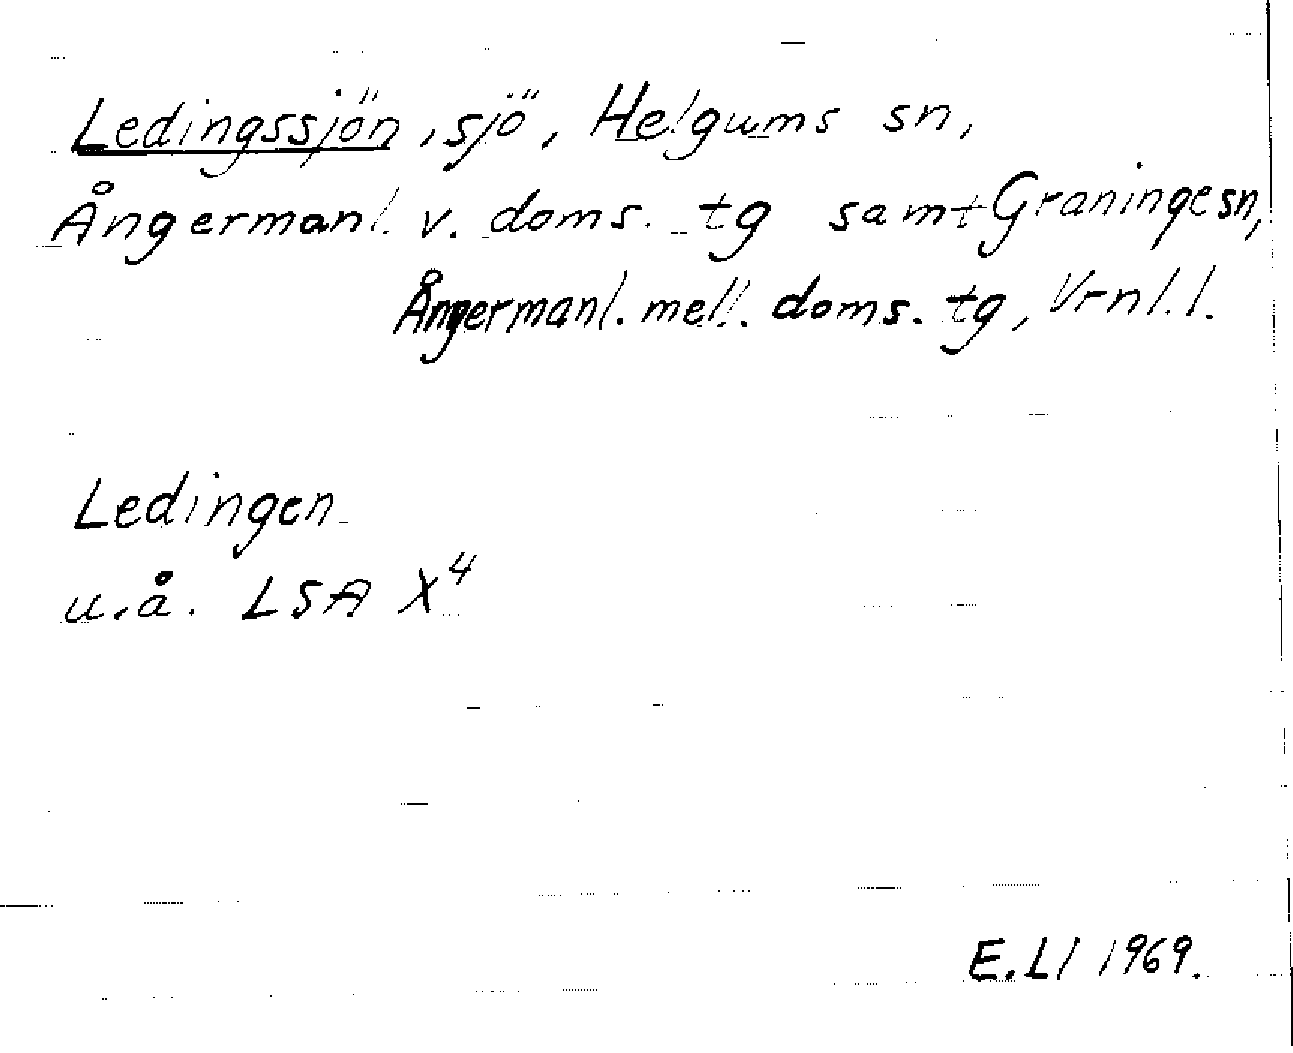 Ledingssjön, sjö, Helgums sn,
Ångermanl. v. doms. tg samt Graninge sn,
Ångermanl. mell. doms. tg, Vrnl. l.
Ledingen
u.å. LSA X⁴
E.Ll 1969.